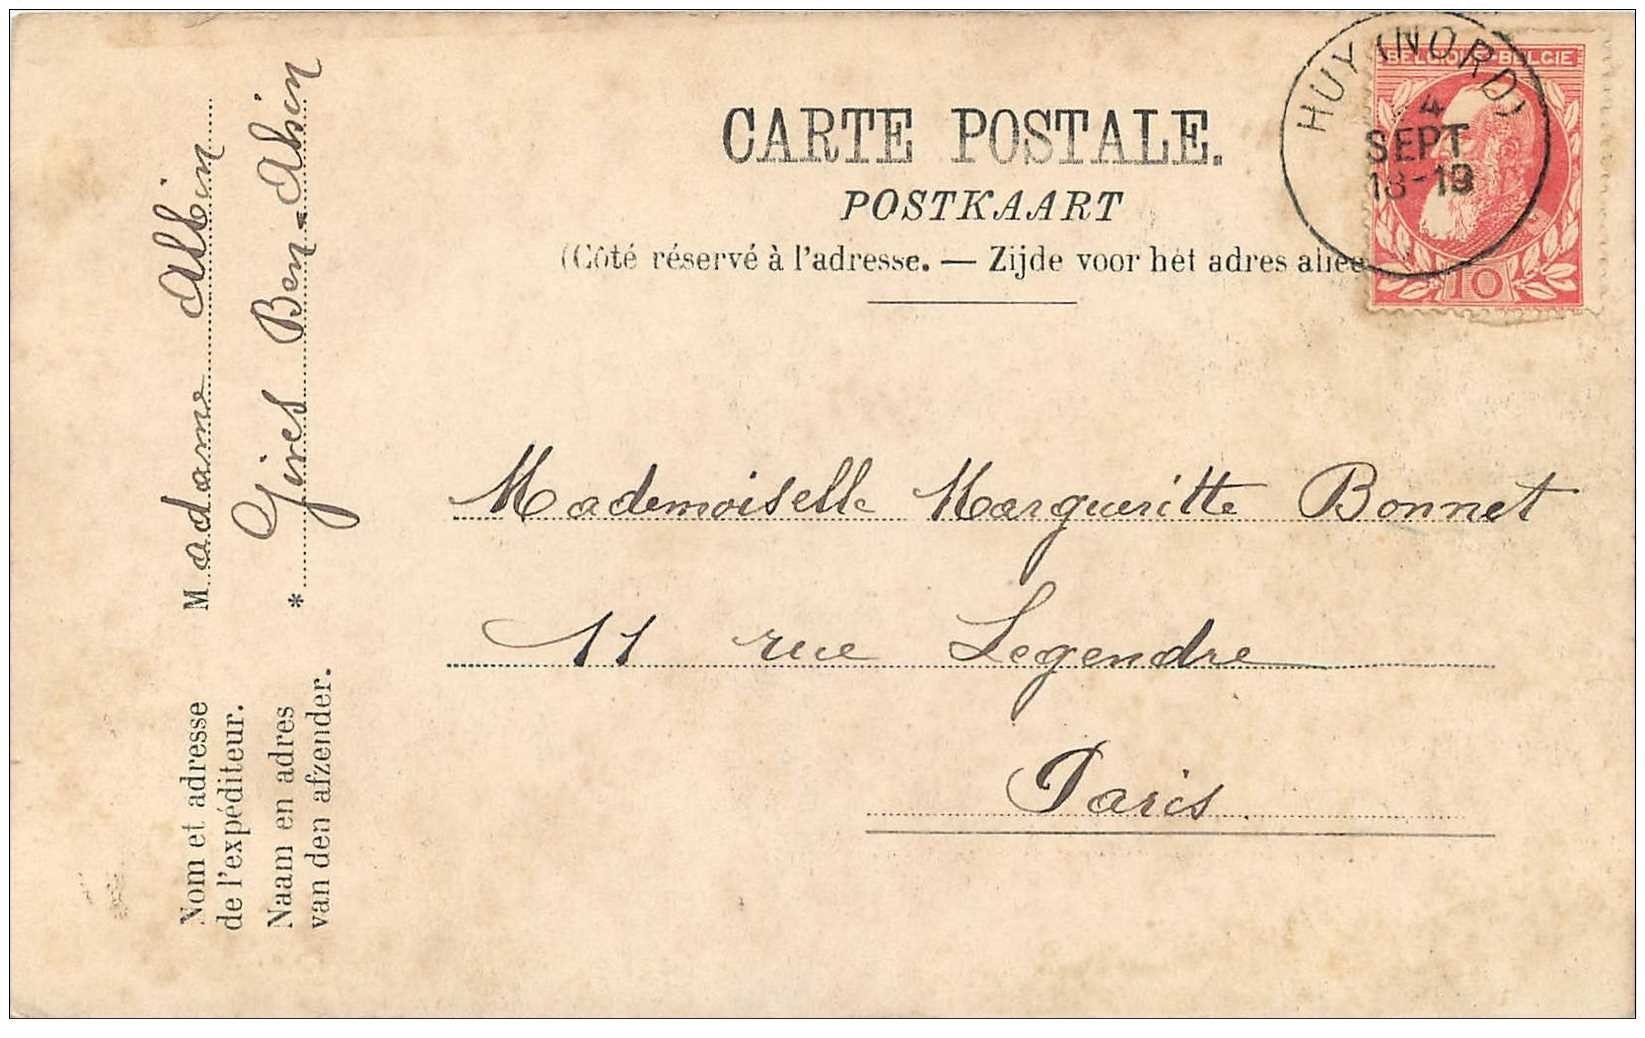 CARTE POSTALE.
POSTKAART
(Côté réservé à l'adresse. — Zijde voor het adres alleen
HUY (NORD)
4
SEPT
18-19
BELGIQUE-BELGIE
10
Mademoiselle Margueritte Bonnet
11 rue Legendre
Paris
Nom et adresse
de l'expéditeur.
Naam en adres
van den afzender.
Madame Albin
* Gives Ben-Ahin